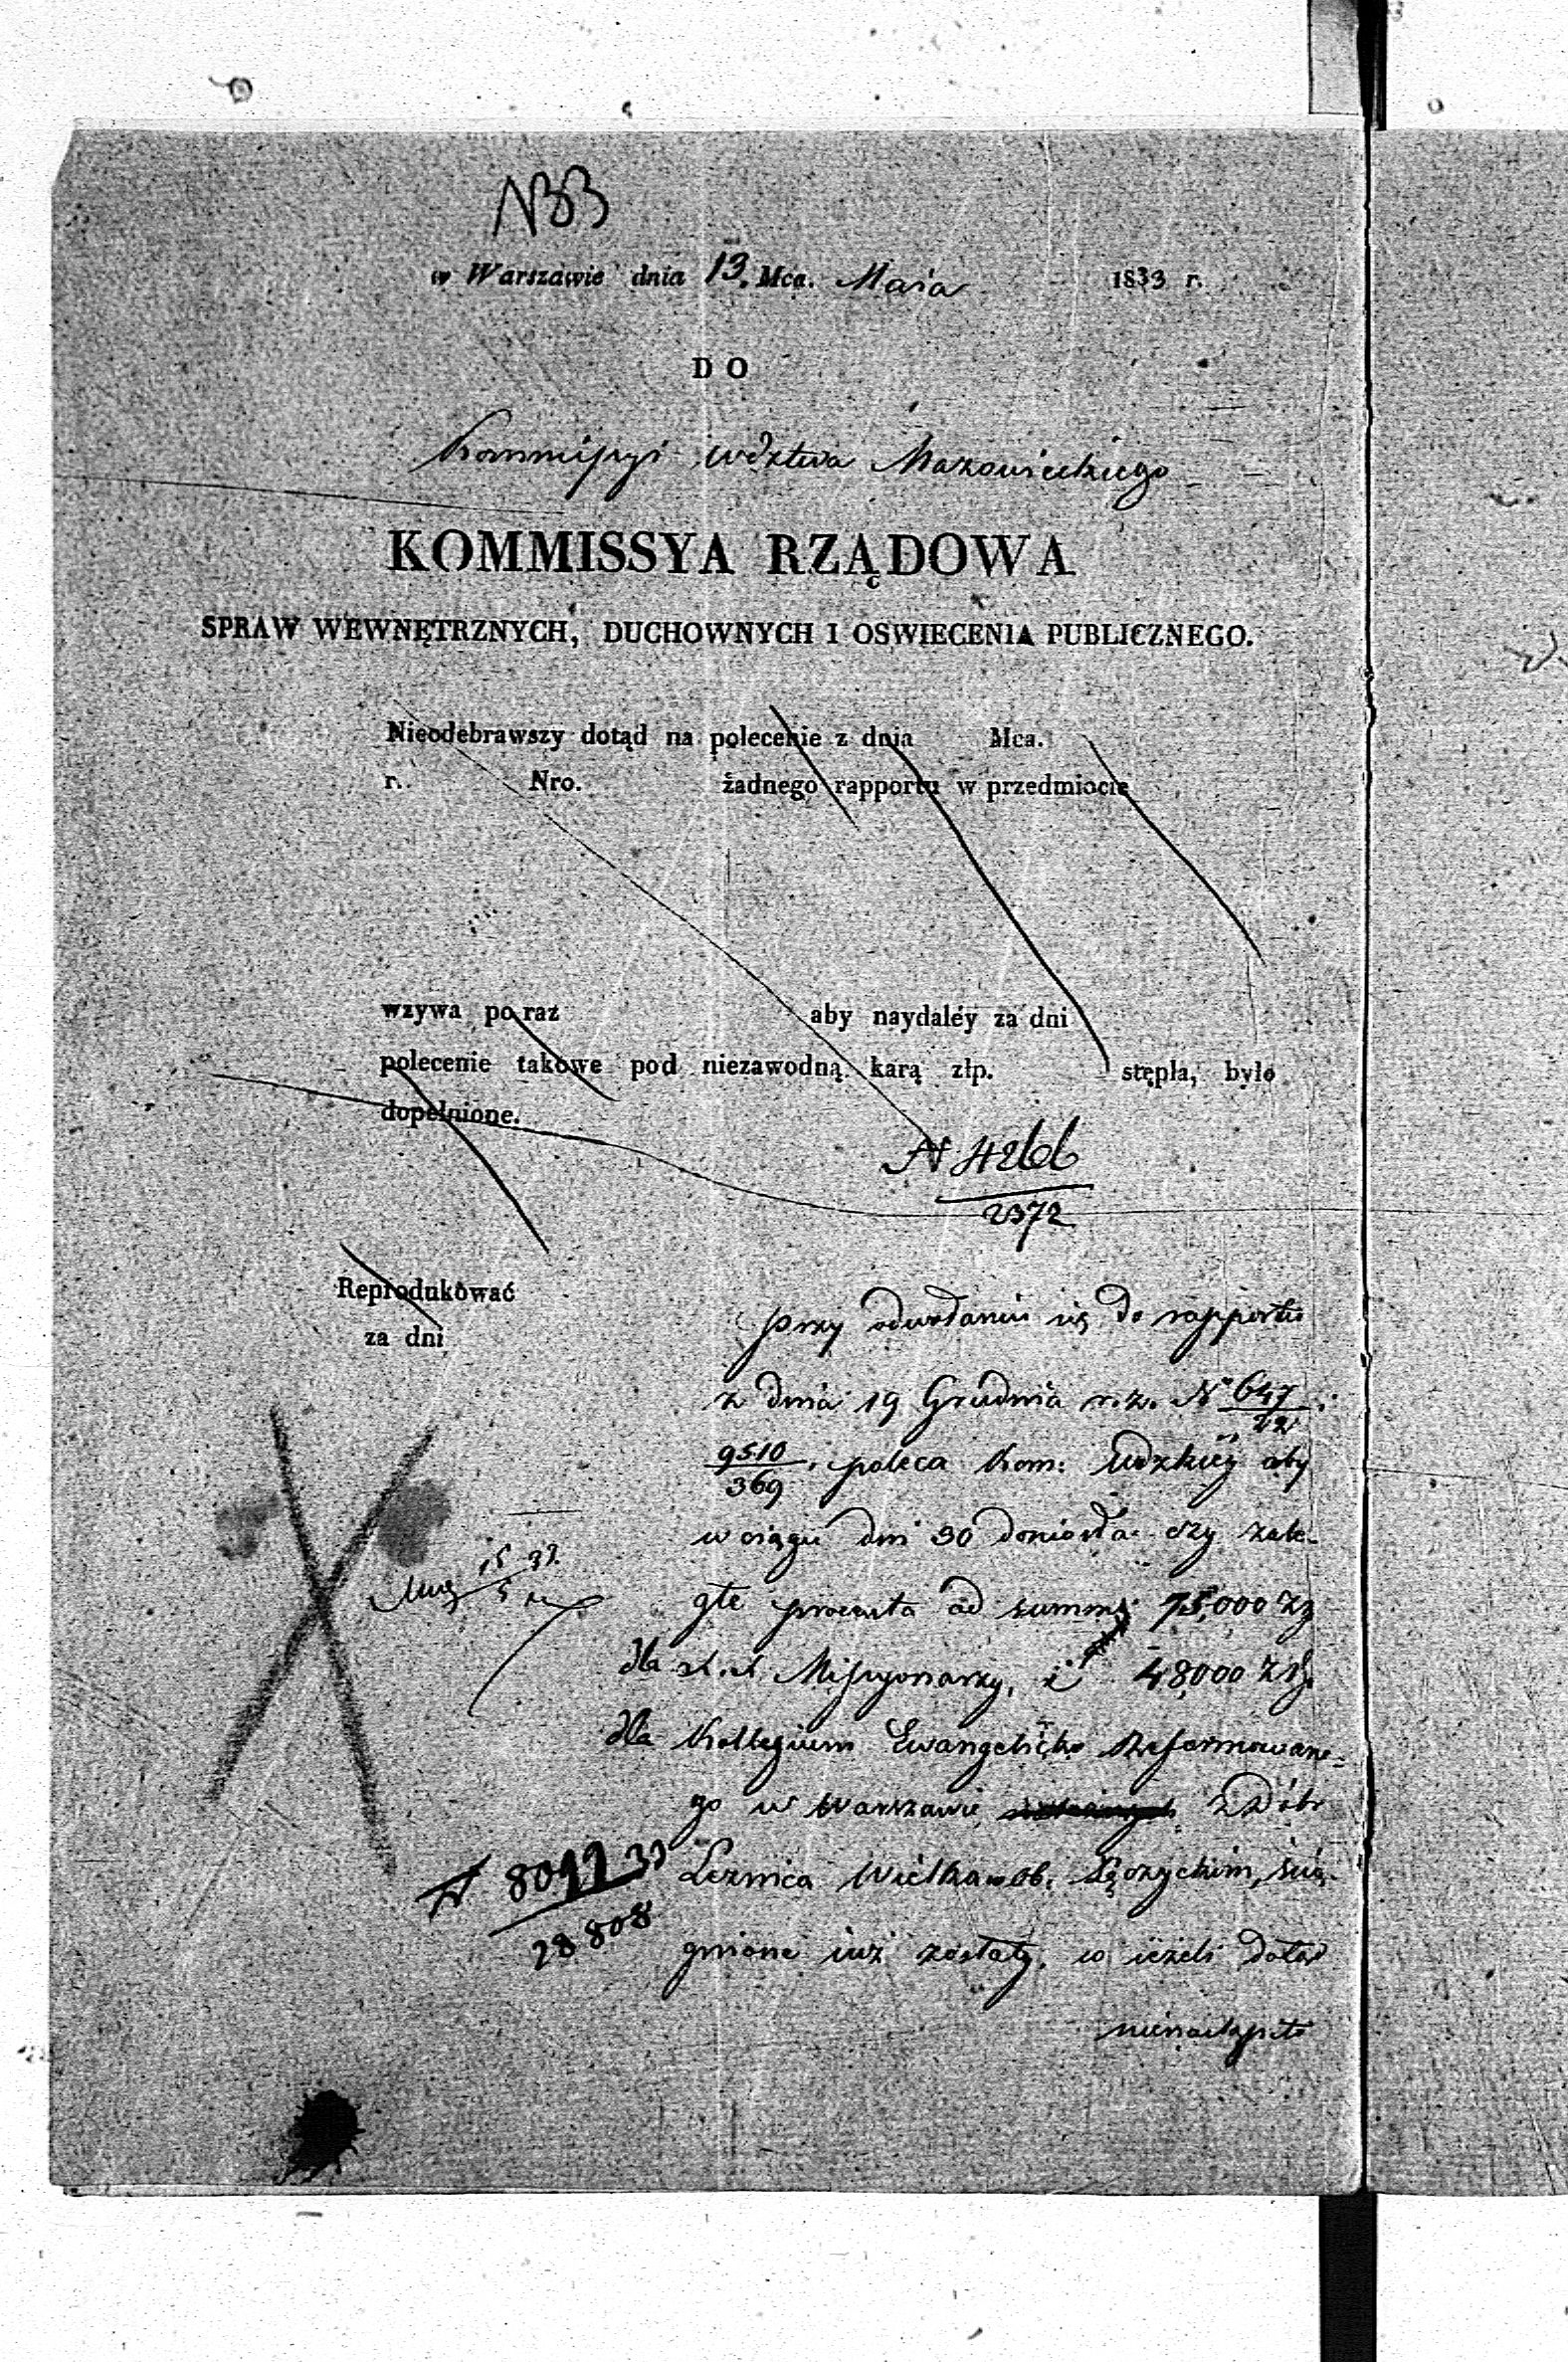 N33
w Warszawie dnia 13. Mca. Maia 1833 r.
DO
Kommissyi Wdztwa Mazowieckiego
KOMMISSYA RZĄDOWA
SPRAW WEWNĘTRZNYCH, DUCHOWNYCH I OSWIECENIA PUBLICZNEGO.
Nieodebrawszy dotąd na polecenie z dnia Mca.
r. Nro. żadnego rapportu w przedmiocie
wzywa po raz aby naydaléy za dni
polecenie takowe pod niezawodną karą złp. stępla, było
dopełnione.
N 4266
2372
Reprodukować
za dni
przy odwołaniu się do rapportu
z dnia 19 Grudnia r. z. N° 647/22
9510/369 poleca Kom. Wdzkiéy aby
w ciągu dni 30 doniosła czy zale-
głe procenta od summy 75,000 Zł
dla Missyonarzy, i 48000 Zł
dla Kollegium Ewangelicko Reformowane-
go w Warszawie z Dóbr
Leznica Wielka w Ob. Łęczyckim, ścią-
gnione iuż zostały, w ieżeli dotąd
nienastąpiło
N 8099
28808